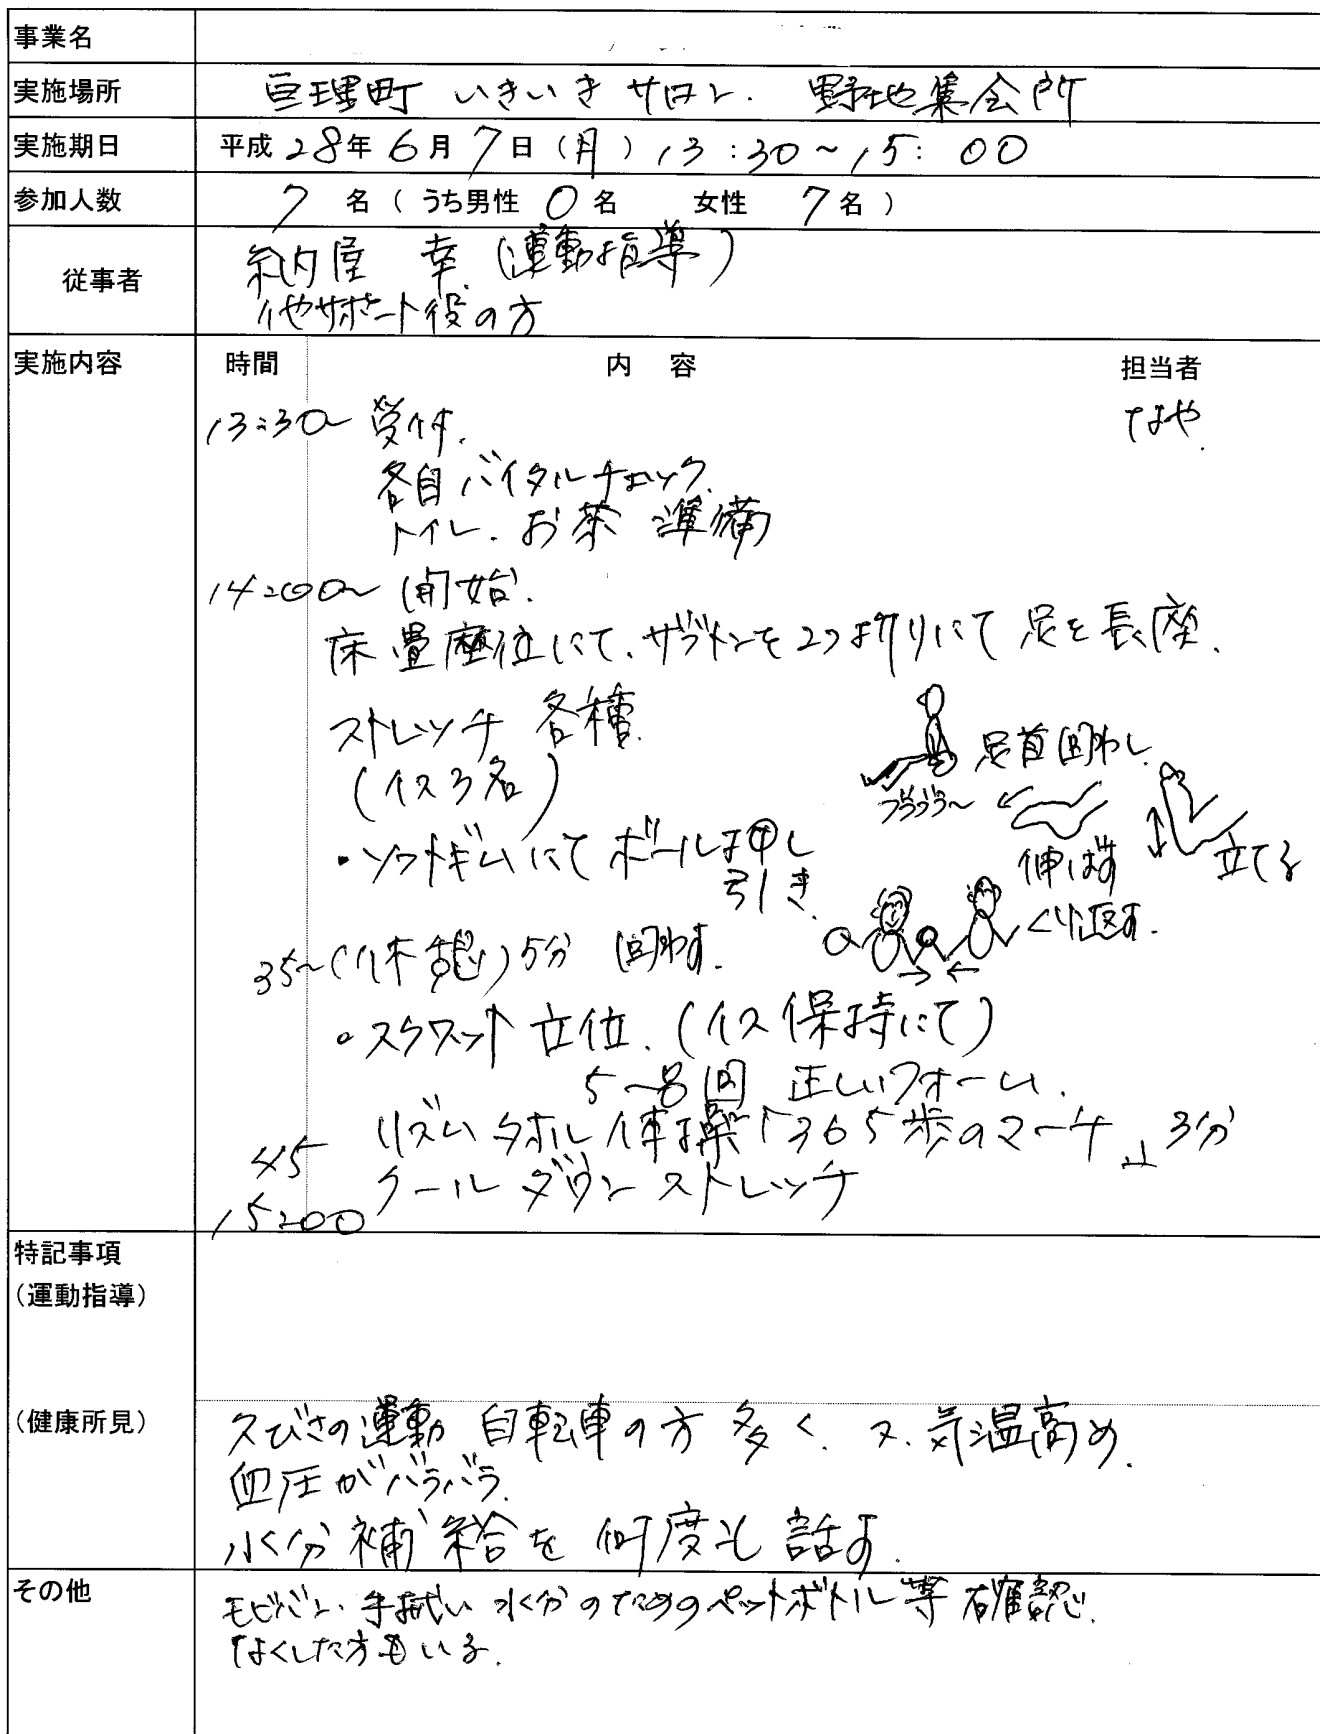 事業名
実施場所 亘理町 いきいきサロン. 野地集会所
実施期日 平成28年6月7日(月)13:30~15:00
参加人数 7名(うち男性 0名 女性 7名)
従事者 納屋 幸 (運動指導)
他サポート役の方
実施内容 時間 内容 担当者
13:30~ 受付. なや.
各自バイタルチェック.
トイレ. お茶 準備
14:00~ 開始.
床畳座位にて、ザブトンを2つ折りにて 足を長座.
ストレッチ 各種.
(イス3名)
足首回わし.
ブラブラ~
伸ばす
立てる
くり返す.
・ソフトギムにて ボール押し
引き.
35~(休憩)5分 回わす.
・スクワット 立位. (イス保持にて)
5~8回 正しいフォーム.
リズムタオル体操「365歩のマーチ」3分
45 クールダウン ストレッチ
15:00
特記事項
(運動指導)
(健康所見) 久びさの運動 自転車の方 多く、又、気温高め.
血圧がバラバラ.
水分補給を何度も話す.
その他 モビバン、手拭い 水分のためのペットボトル等 確認.
なくした方もいる.